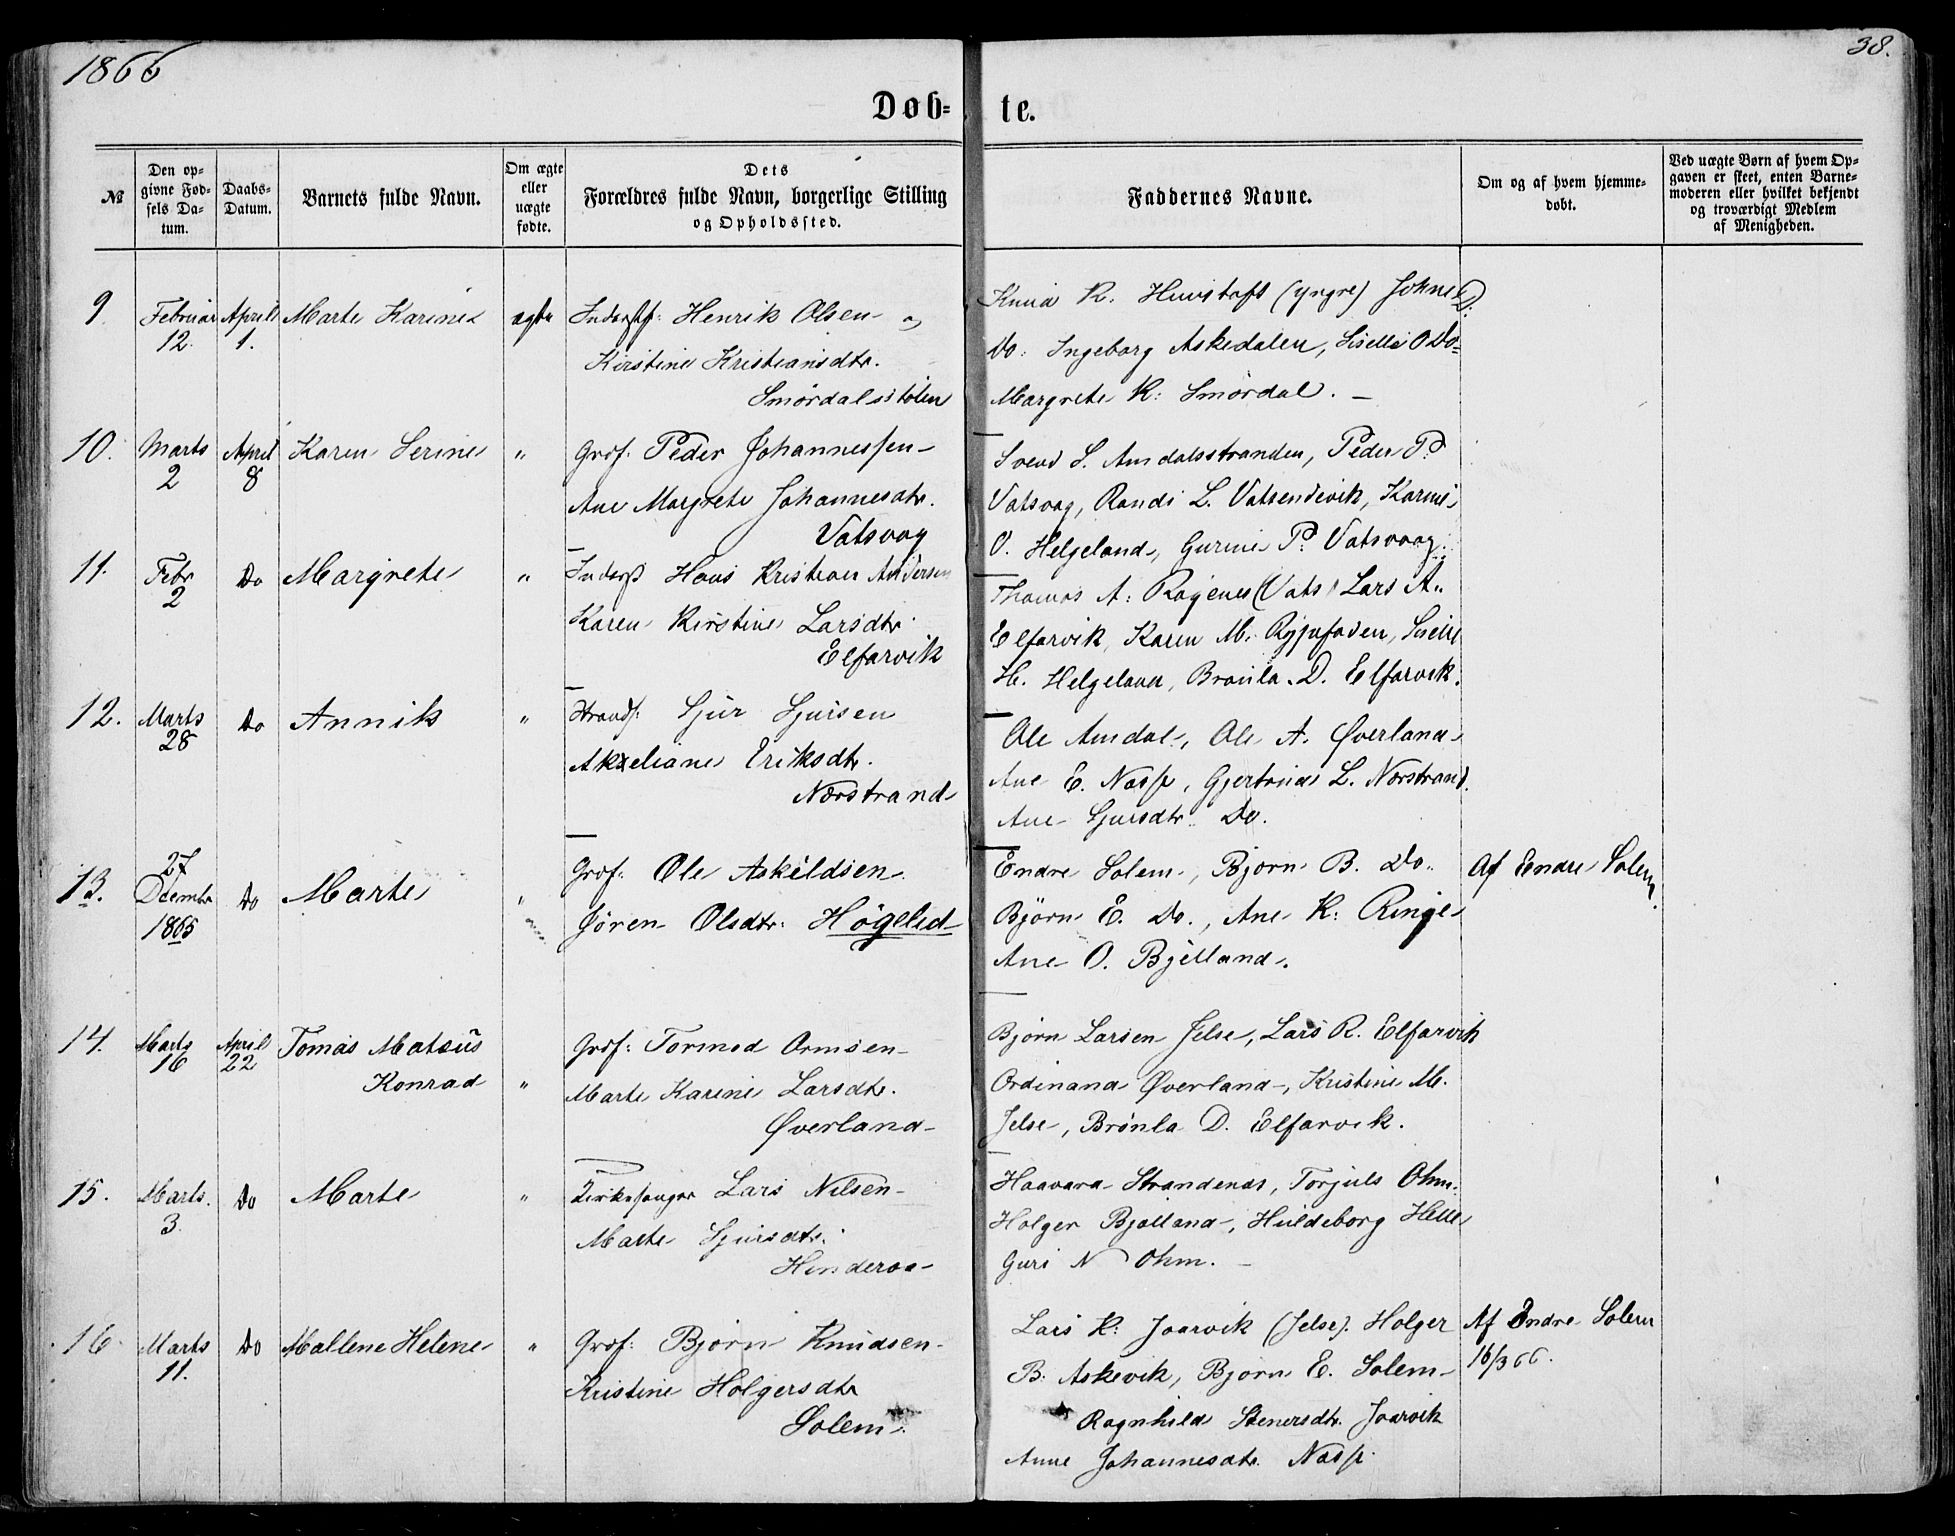 1866
38.
Døb- te.
№
Den op-
givne Fød-
sels Da-
tum.
Daabs-
Datum.
Barnets fulde Navn.
Om ægte
eller
uægte
fødte.
Dets
Forældres fulde Navn, borgerlige Stilling
og Opholdssted.
Faddernes Navne.
Om og af hvem hjemme-
døbt.
Ved uægte Børn af hvem Op-
gaven er skeet, enten Barne-
moderen eller hvilket bekjendt
og troværdigt Medlem
af Menigheden.
9. Februar 12. April 1. Marte Karine ægte
Henrik Olsen og
Kirstine Kristiansdtr.
Smørdalsstølen
Knud R. (yngre) Johne D.
Do: Ingeborg Askedalen, Siselle O Do=
Margrete K: Smørdal. —
10. Marts 2 April 8 Karen Serine "
Grdf: Peder Johannessen
Ane Margrete Johannesdtr.
Vatsvag
Svend S. Amdalsstranden, Peder P.
Vatsvag, Randi L. Vatsendevik, Karine
O. Helgeland, Gurine P. Vatsvaag.
11. Febr 2 Do Margrete "
Inderst Hans Kristian Andersen
Karen Kirstine Larsdtr.
Elfarvik
Thomas A: Ragenes (Vats) Lars A.
Elfarvik, Karen M. Siselle
H. Helgeland, Bronla D. Elfarvik.
12. Marts 28 Do Annik "
Strands: Sjur Sjursen
Akzeliane Eriksdtr.
Nærstrand
Ole Amdal, Ole A. Øverland
Ane E. Næss, Gjertrud L. Nærstrand.
Ane Sjursdtr. Do.
13. 27 Decembr 1865 Do Marte "
Grdf: Ole Askildsen
Jøren Olsdtr: Høgelid
Endre Solem, Bjørn B. Do.
Bjørn E. Do., Ane K: Ringe
Ane O. Bjelland.
Af Endre Solem.
14. Marts 16 April 22 Tomas Matæus
Konrad "
Grdf: Tormod Ormsen
Marte Karine Larsdtr.
Øverland
Bjørn Larsen Jelse, Lars R. Elfarvik
Ordinand Øverland, Kristine M.
Jelse, Brønla D. Elfarvik.
15. Marts 3. Do Marte "
Kirkesanger Lars Nilsen
Marte Sjursdtr.
Hinderaa
Haavard Strandenæs, Torjuls Ohm.
Holger Bjelland, Huldeborg Helle
Guri N Ohm. —
16 Marts 11. Do Mallene Helene "
Grdf: Bjørn Knudsen
Kristine Holgersdtr
Solem.
Lars K: Jaarvik (Jelse). Holger
B. Askevik, Bjørn E. Solem
Ragnhild Stenersdtr. Jaarvik
Anne Johannesdtr. Næss.
Af Endre Solem
16/3 66.